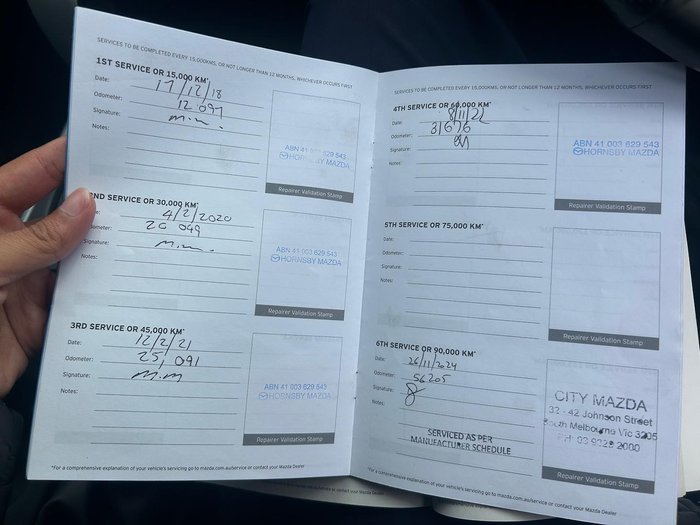 SERVICES TO BE COMPLETED EVERY 15,000KMS, OR NOT LONGER THAN 12 MONTHS, WHICHEVER OCCURS FIRST
1ST SERVICE OR 15,000 KM*
Date: 17/12/18
Odometer: 12 097
Signature: m.m.
Notes:
ABN 41 003 629 543
HORNSBY MAZDA
Repairer Validation Stamp
2ND SERVICE OR 30,000 KM*
4/2/2020
Odometer: 20 049
Signature: m.m.
Notes:
ABN 41 003 629 543
HORNSBY MAZDA
Repairer Validation Stamp
3RD SERVICE OR 45,000 KM*
Date: 12/2/21
Odometer: 25,091
Signature: m.m
Notes:
ABN 41 003 629 543
HORNSBY MAZDA
Repairer Validation Stamp
*For a comprehensive explanation of your vehicle's servicing go to mazda.com.au/service or contact your Mazda Dealer
SERVICES TO BE COMPLETED EVERY 15,000KMS, OR NOT LONGER THAN 12 MONTHS, WHICHEVER OCCURS FIRST
4TH SERVICE OR 60,000 KM*
Date: 8/11/22
Odometer: 31676
Signature:
Notes:
ABN 41 003 629 543
HORNSBY MAZDA
Repairer Validation Stamp
5TH SERVICE OR 75,000 KM*
Date:
Odometer:
Signature:
Notes:
Repairer Validation Stamp
6TH SERVICE OR 90,000 KM*
Date: 26/11/2024
Odometer: 56205
Signature:
Notes:
SERVICED AS PER
MANUFACTURER SCHEDULE
CITY MAZDA
32 - 42 Johnson Street
South Melbourne Vic 3205
PH: 03 9229 2000
Repairer Validation Stamp
*For a comprehensive explanation of your vehicle's servicing go to mazda.com.au/service or contact your Mazda Dealer